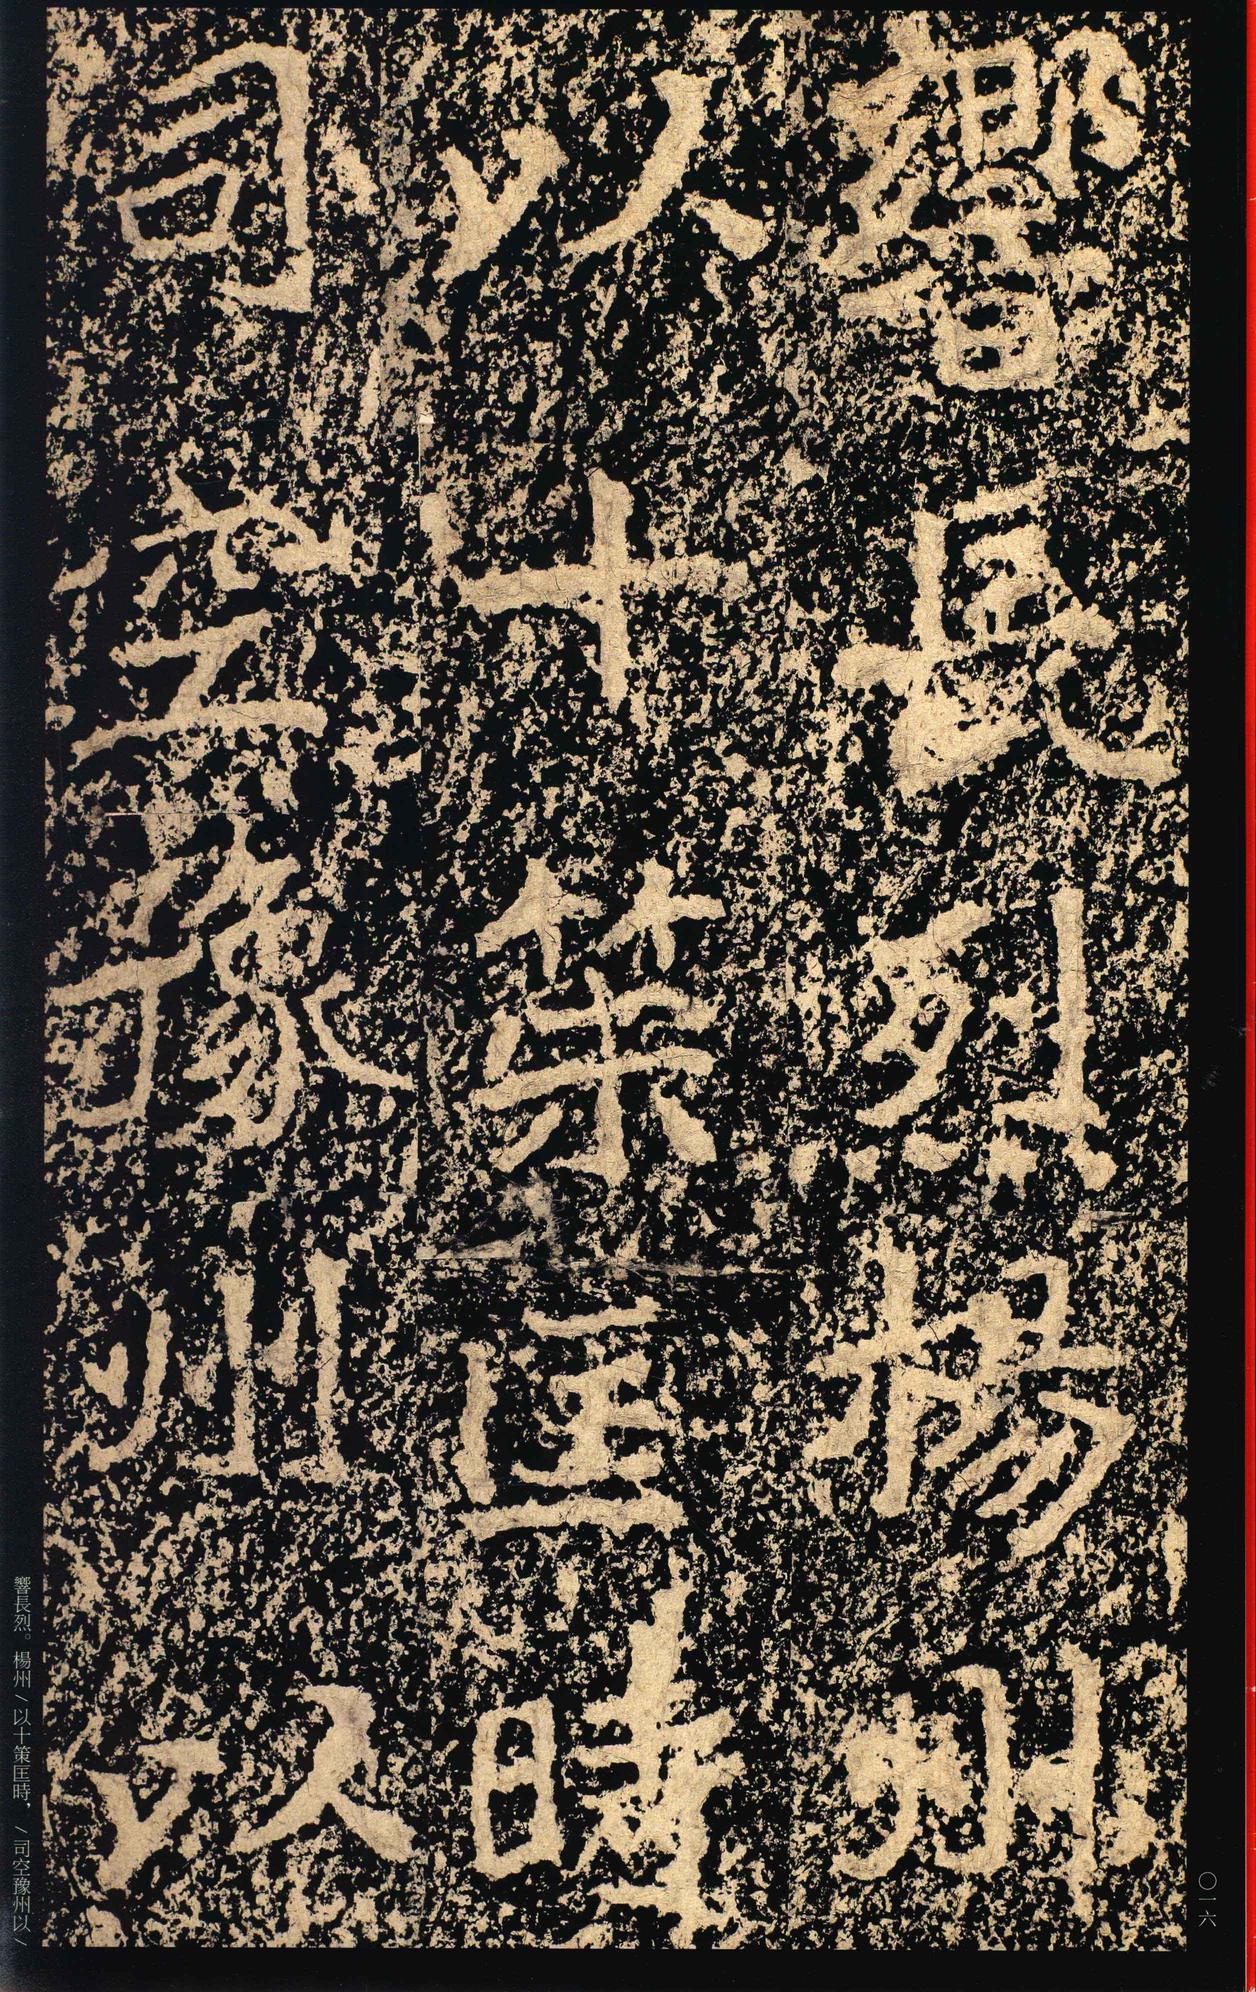 響長烈楊州
以十策匡時
司空豫州以
響長烈。楊州／以十策匡時，／司空豫州以／
〇一六